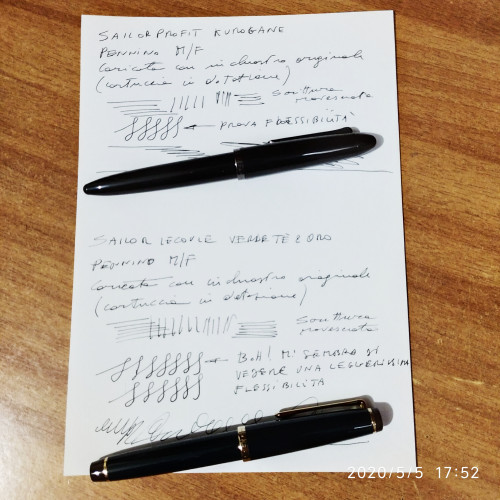 SAILOR PROFIT KUROGANE
PENNINO M/F
Caricata con inchiostro originale
(cartuccia in dotazione)
Scrittura
rovesciata
PROVA FLESSIBILITÀ
SAILOR LECOULE VERDE TE E ORO
PENNINO M/F
Caricata con inchiostro originale
(cartuccia in dotazione)
Scrittura
rovesciata
BOH! MI SEMBRA DI
VEDERE UNA LEGGERISSIMA
FLESSIBILITÀ
2020/5/5 17:52